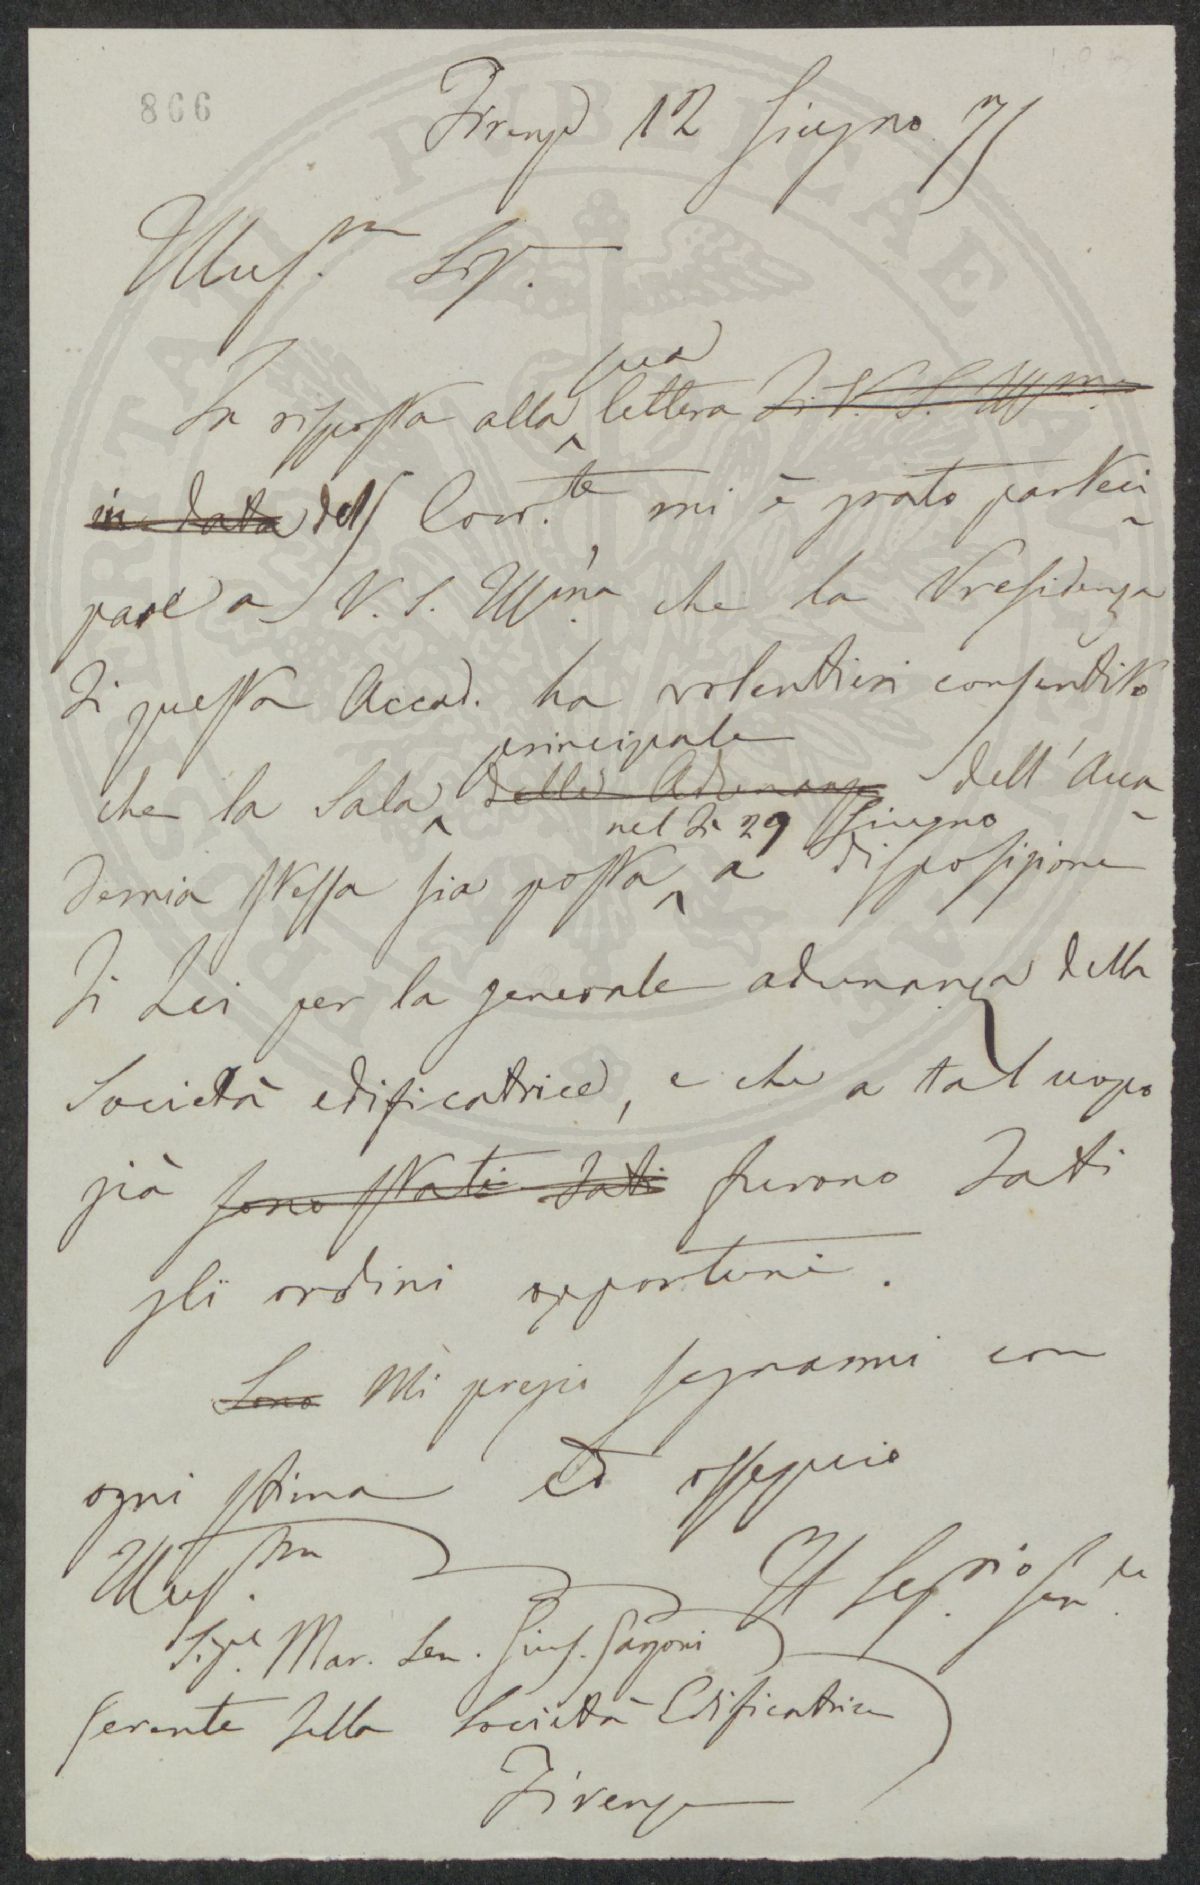 866
Firenze 12 Giugno 75
Illus.mo Sig.
sua
In risposta alla lettera di V. S. Ill.ma
in data del 5 Corr.te mi è grato parteci
pare a V. S. Ill.ma che la Presidenza
di questa Accad. ha volentieri consentito
principale
che la Sala delle Adunanze dell'Acca
nel dì 29 Giugno
demia stessa sia posta a disposizione
di Lei per la generale adunanza della
Società edificatrice, e che a tal uopo
già sono stati dati furono dati
gli ordini opportuni.
Sono Mi pregio segnarmi con
ogni stima ed ossequio
Illus.mo
Il Seg.rio
Sig.re Mar. Sen. Gius. Garzoni
Gerente della Società Edificatrice
Firenze